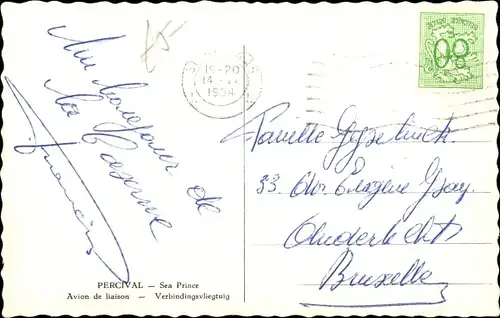 Un bonjour de
La Caserne
Francis
15-20
14
1954
80
Famille Gyselinck
33 Av. Eugène Ysaÿe
Anderlecht
Bruxelles
PERCIVAL — Sea Prince
Avion de liaison — Verbindingsvliegtuig